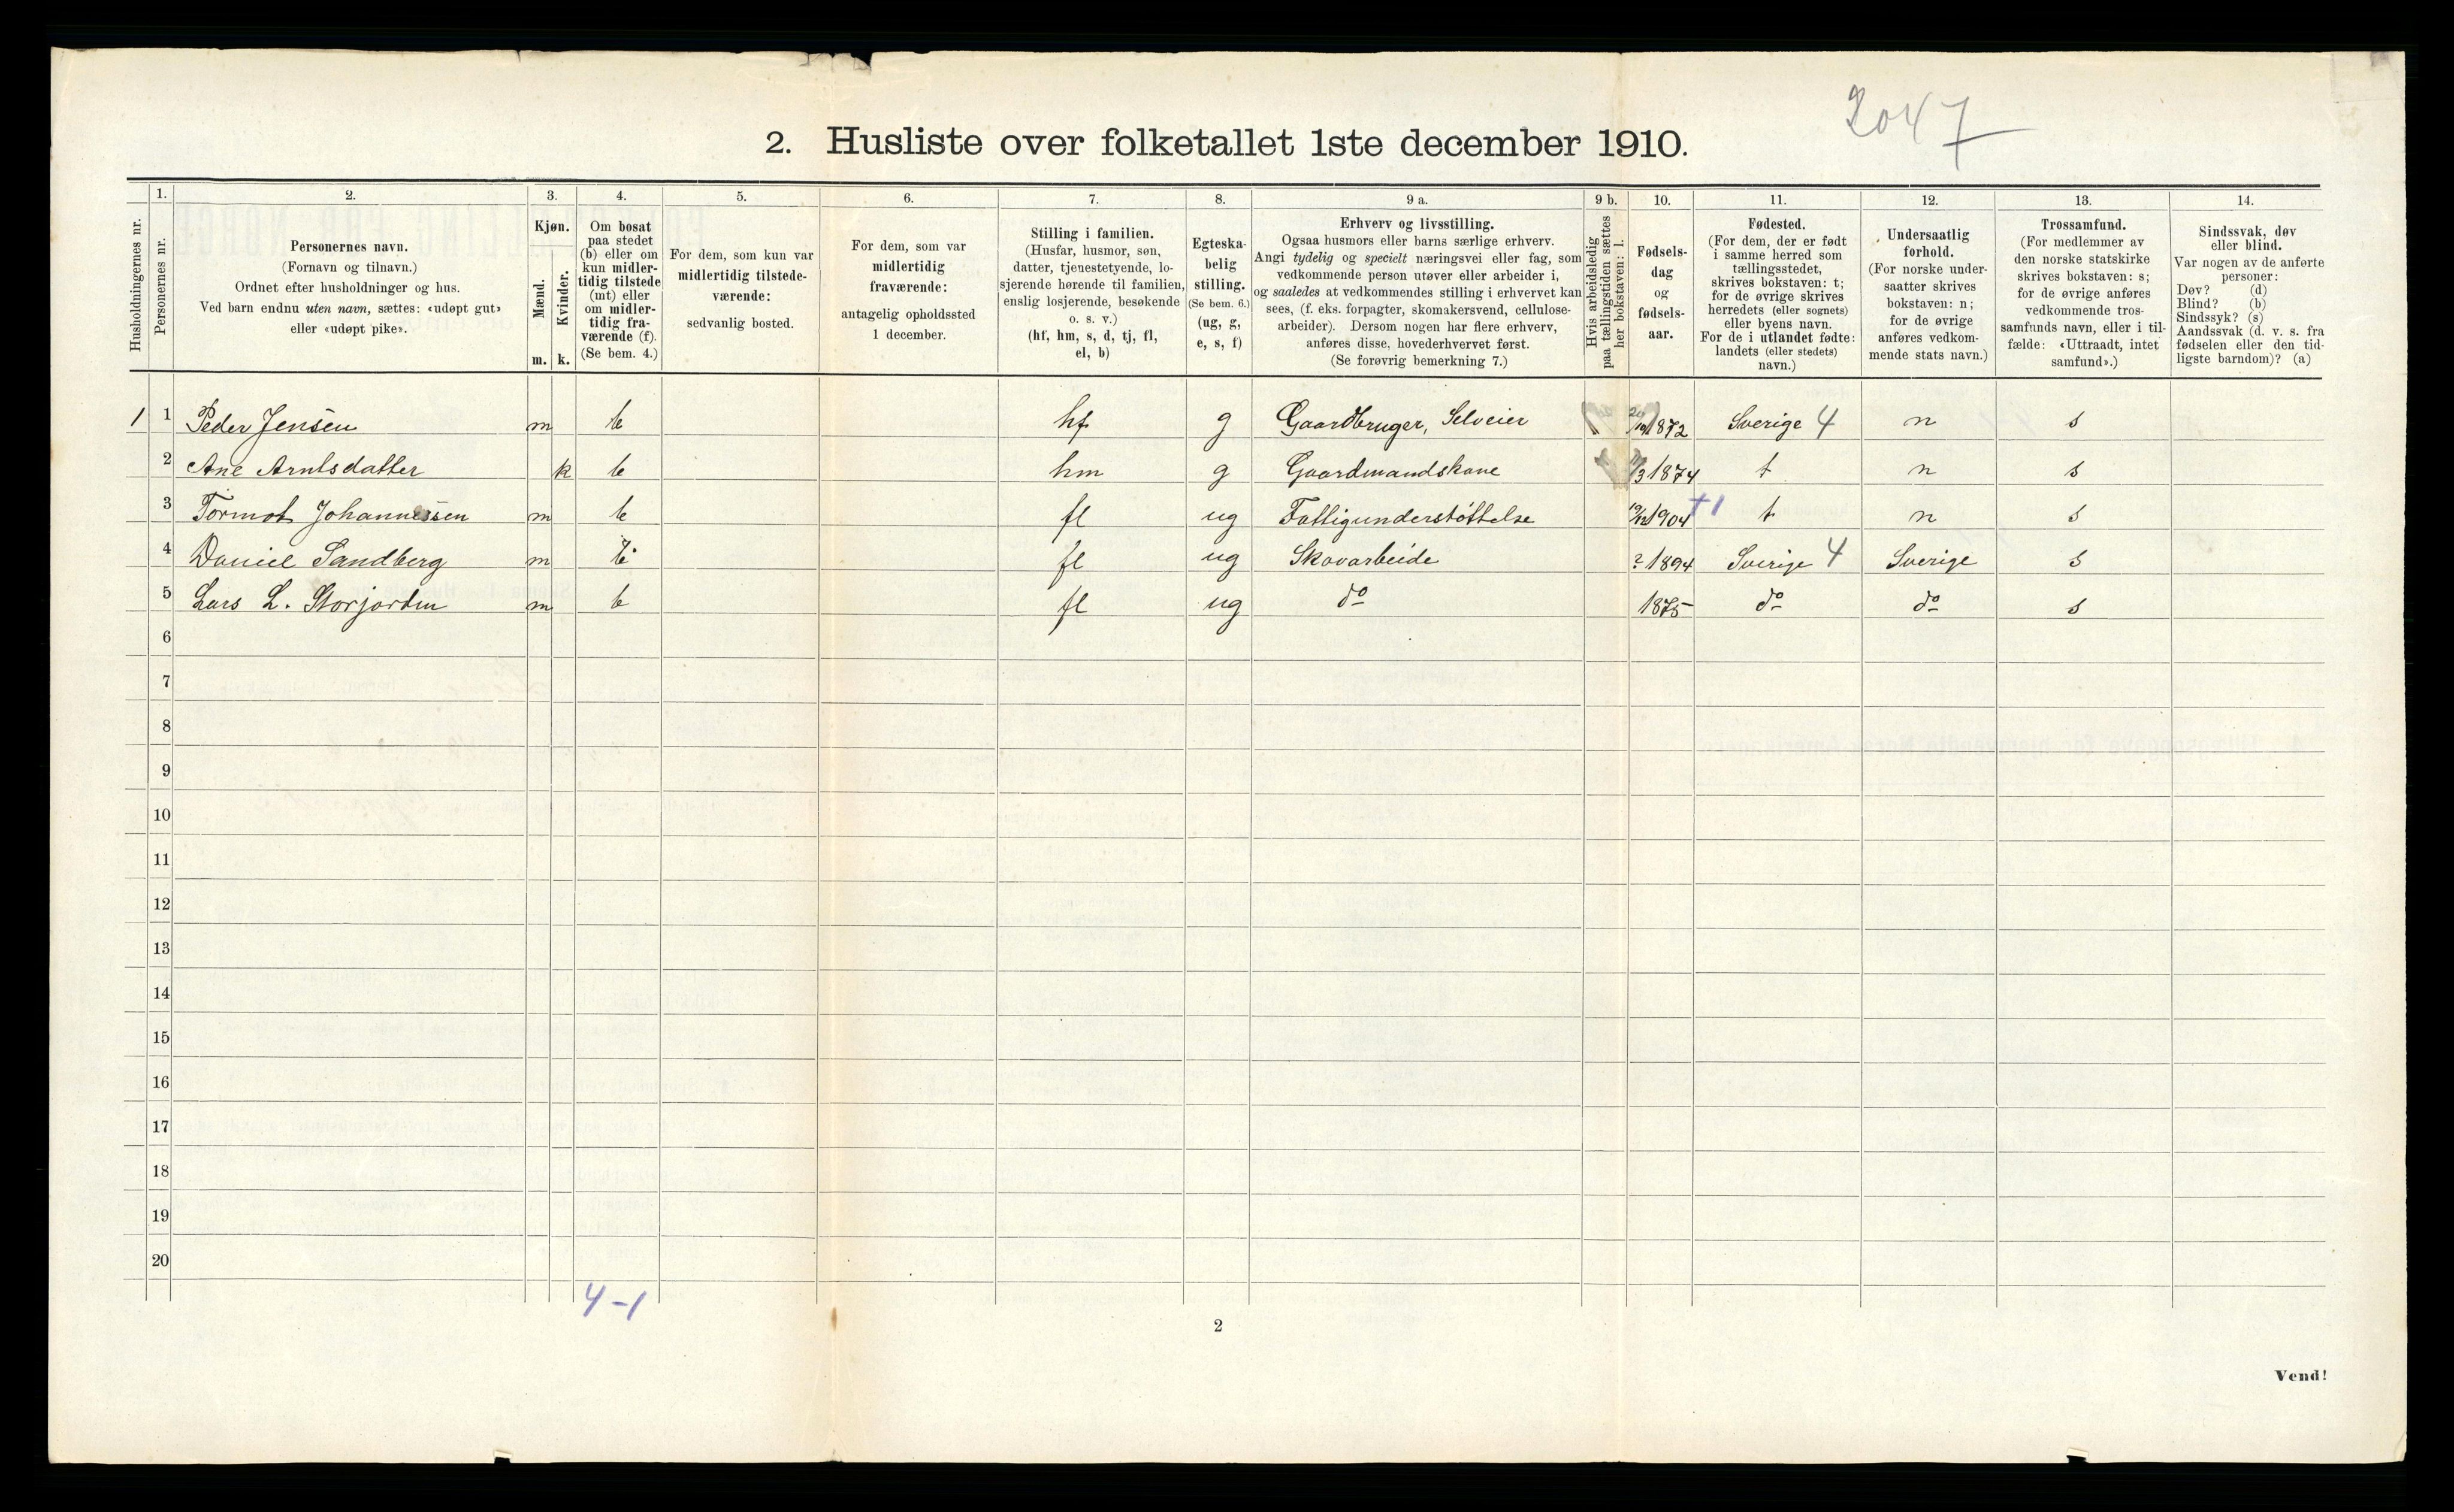 2047
2. Husliste over folketallet 1ste december 1910.
Husholdningernes nr.
1.
Personernes nr.
2.
Personernes navn.
(Fornavn og tilnavn.)
Ordnet efter husholdninger og hus.
Ved barn endnu uten navn, sættes: «udøpt gut»
eller «udøpt pike».
3.
Kjøn.
Mænd.
Kvinder.
m. k.
4.
Om bosat
paa stedet
(b) eller om
kun midler-
tidig tilstede
(mt) eller
om midler-
tidig fra-
værende (f).
(Se bem. 4.)
5.
For dem, som kun var
midlertidig tilstede-
værende:
sedvanlig bosted.
6.
For dem, som var
midlertidig
fraværende:
antagelig opholdssted
1 december.
7.
Stilling i familien.
(Husfar, husmor, søn,
datter, tjenestetyende, lo-
sjerende hørende til familien,
enslig losjerende, besøkende
o. s. v.)
(hf, hm, s, d, tj, fl,
el, b)
8.
Egteska-
belig
stilling.
(Se bem. 6.)
(ug, g,
e, s, f)
9 a.
Erhverv og livsstilling.
Ogsaa husmors eller barns særlige erhverv.
Angi tydelig og specielt næringsvei eller fag, som
vedkommende person utøver eller arbeider i,
og saaledes at vedkommendes stilling i erhvervet kan
sees, (f. eks. forpagter, skomakersvend, cellulose-
arbeider). Dersom nogen har flere erhverv,
anføres disse, hovederhvervet først.
(Se forøvrig bemerkning 7.)
9 b.
Hvis arbeidsledig
paa tællingstiden sættes
her bokstaven: l.
10.
Fødsels-
dag
og
fødsels-
aar.
11.
Fødested.
(For dem, der er født
i samme herred som
tællingsstedet,
skrives bokstaven: t;
for de øvrige skrives
herredets (eller sognets)
eller byens navn.
For de i utlandet fødte:
landets (eller stedets)
navn.)
12.
Undersaatlig
forhold.
(For norske under-
saatter skrives
bokstaven: n;
for de øvrige
anføres vedkom-
mende stats navn.)
13.
Trossamfund.
(For medlemmer av
den norske statskirke
skrives bokstaven: s;
for de øvrige anføres
vedkommende tros-
samfunds navn, eller i til-
fælde: «Uttraadt, intet
samfund».)
14.
Sindssvak, døv
eller blind.
Var nogen av de anførte
personer:
Døv? (d)
Blind? (b)
Sindssyk? (s)
Aandssvak (d. v. s. fra
fødselen eller den tid-
ligste barndom)? (a)
1 1 Peder Jensen m b hf g Gaardbruger, Selveier 1872 Sverige 4 n s
2 Ane Arntsdatter k b hm g Gaardmandskone /3 1874 t n s
3 Tormot Johannessen m b fl ug Fattigunderstøttelse 1904 +1 t n s
4 Daniel Sandberg m b fl ug Skovarbeide ? 1894 Sverige 4 Sverige s
5 Lars L. Storjorden m b fl ug do 1875 do do s
6
7
8
9
10
11
12
13
14
15
16
17
18
19
20
4-1
2
Vend!